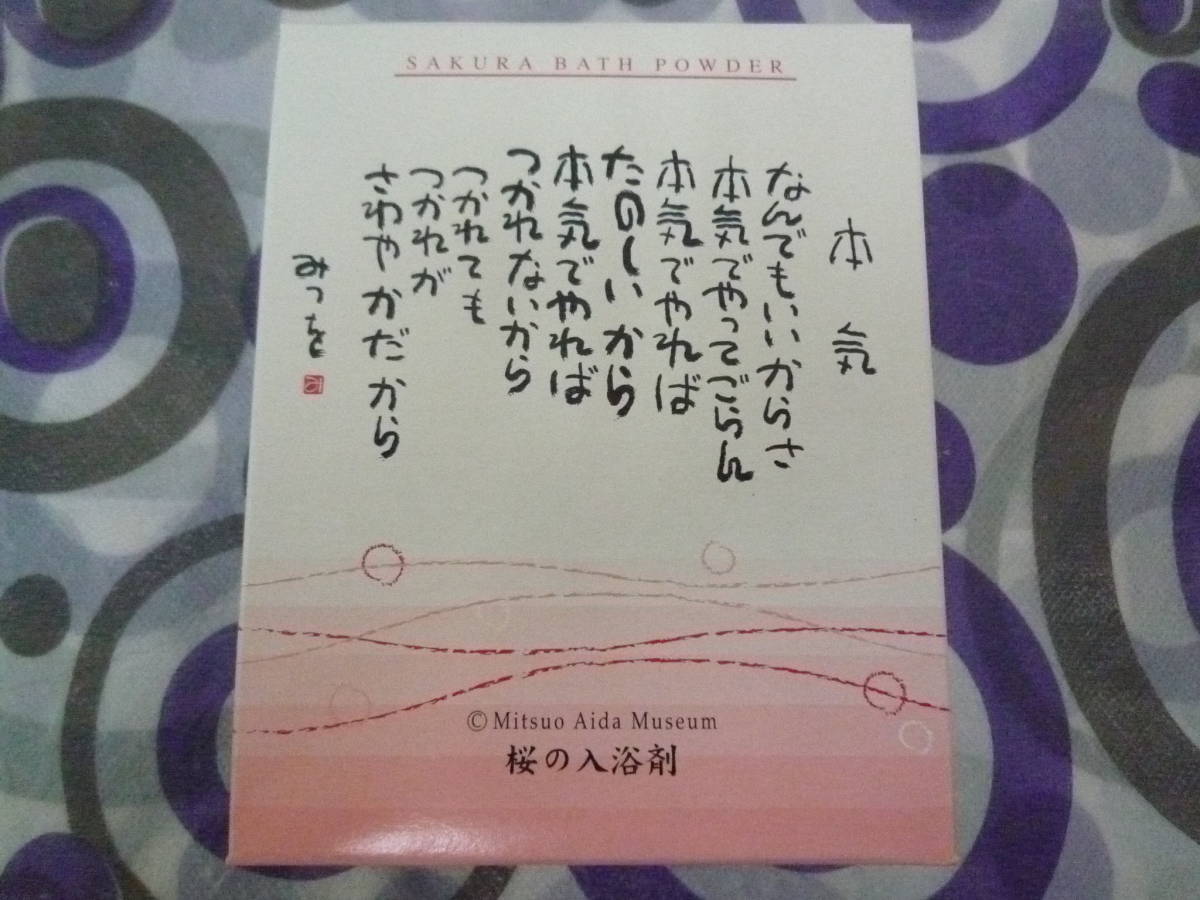 SAKURA BATH POWDER
本気
なんでもいいからさ
本気でやってごらん
本気でやれば
たのしいから
本気でやれば
つかれないから
つかれても
つかれが
さわやかだから
みつを
© Mitsuo Aida Museum
桜の入浴剤